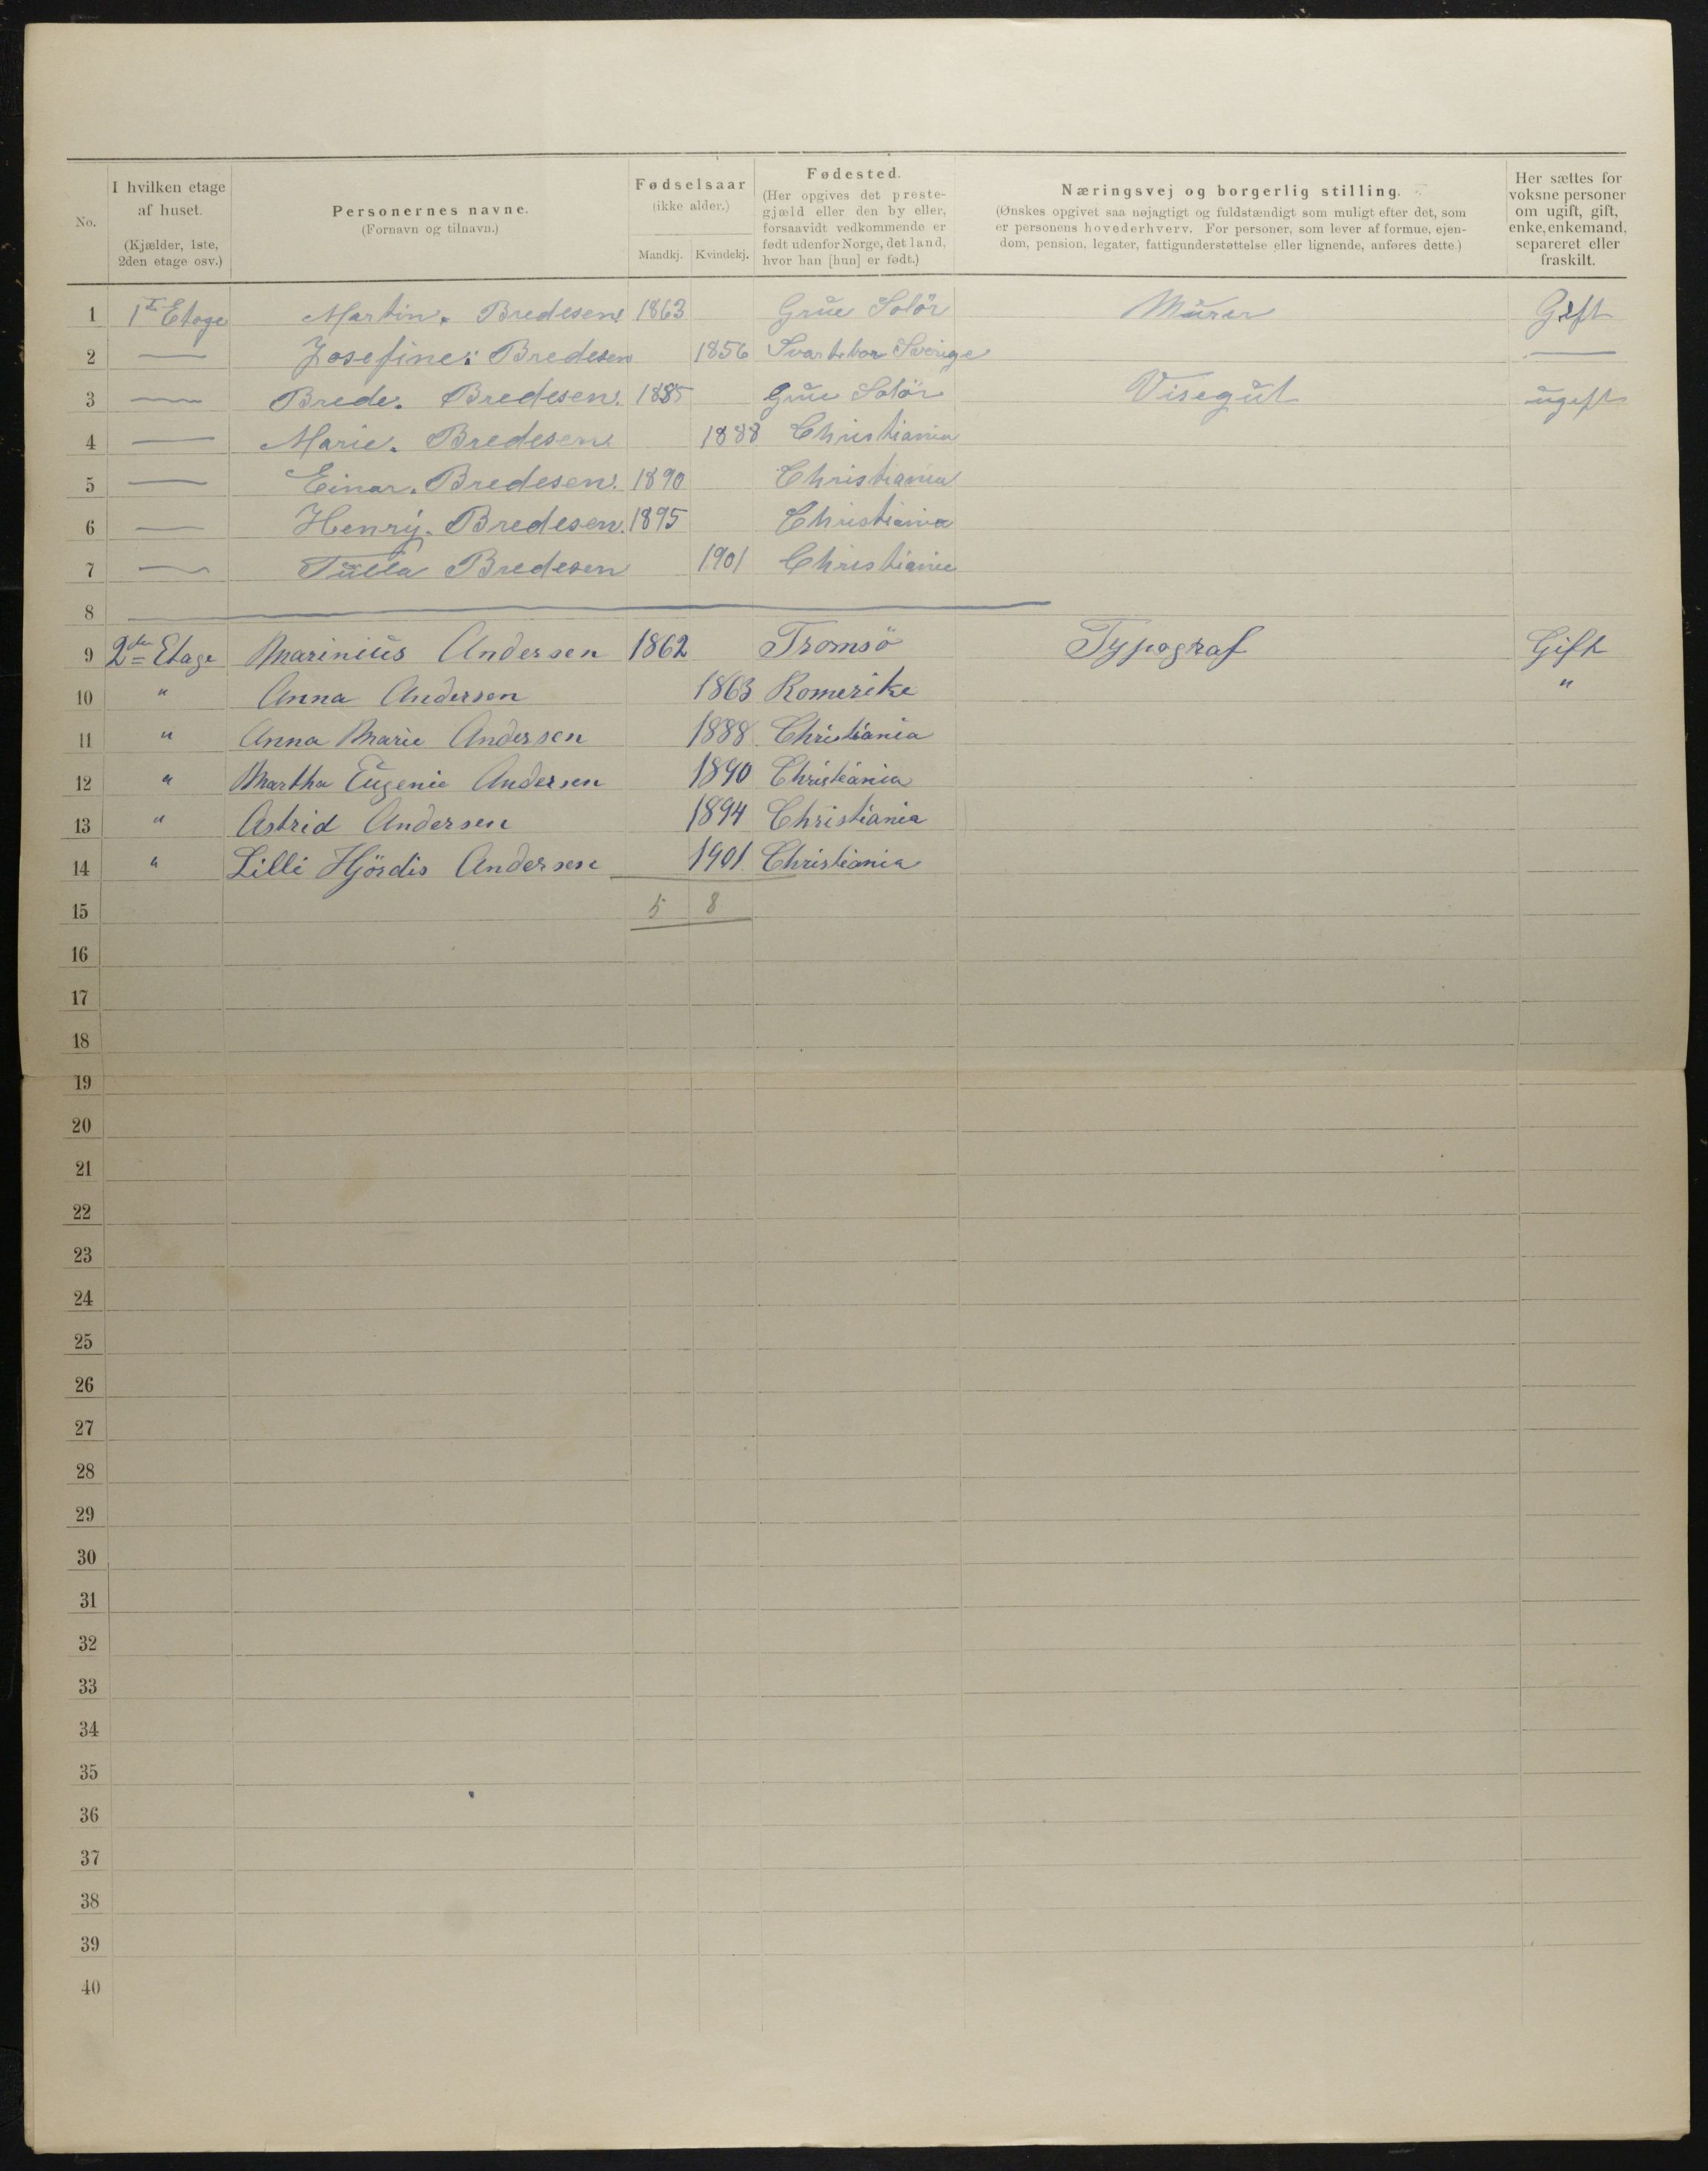 No.
I hvilken etage af huset. (Kjælder, 1ste, 2den etage osv.)
Personernes navne. (Fornavn og tilnavn.)
Fødselsaar (ikke alder.)
Mandkj. Kvindekj.
Fødested. (Her opgives det prestegjæld eller den by eller, forsaavidt vedkommende er født udenfor Norge, det land, hvor han [hun] er født.)
Næringsvej og borgerlig stilling. (Ønskes opgivet saa nøjagtigt og fuldstændigt som muligt efter det, som er personens hovederhverv. For personer, som lever af formue, ejendom, pension, legater, fattigunderstøttelse eller lignende, anføres dette.)
Her sættes for voksne personer om ugift, gift, enke, enkemand, separeret eller fraskilt.
1 1ste Etage Martin. Bredesen 1863 Grue Solör Murer Gift
2 — Josefine: Bredesen 1856 Svartebor Sverige —
3 — Brede. Bredesen. 1885 Grue Solör Visegut ugift
4 — Marie. Bredesen 1888 Christiania
5 — Einar. Bredesen. 1890 Christiania
6 — Henry. Bredesen. 1895 Christiania
7 — Tulla Bredesen 1901 Christiania
8
9 2den Etage Marinius Andersen 1862 Tromsö Typograf Gift
10 " Anna Andersen 1863 Romerike "
11 " Anna Marie Andersen 1888 Christiania
12 " Martha Eugenie Andersen 1890 Christiania
13 " Astrid Andersen 1894 Christiania
14 " Lilli Hjördis Andersen 1901 Christiania
15 5 8
16
17
18
19
20
21
22
23
24
25
26
27
28
29
30
31
32
33
34
35
36
37
38
39
40